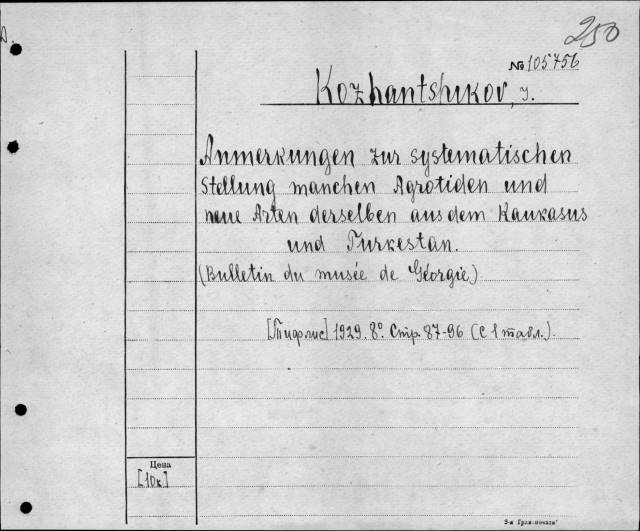 250
№ 105756
Kozhantshikov, J.
Anmerkungen zur systematischen
Stellung manchen Agrotiden und
neue Arten derselben aus dem Kaukasus
und Turkestan.
(Bulletin du musée de Géorgie)
[Тифлис] 1929. 8º. Стр. 87-96 (с 1 табл.).
Цена
[10к.]